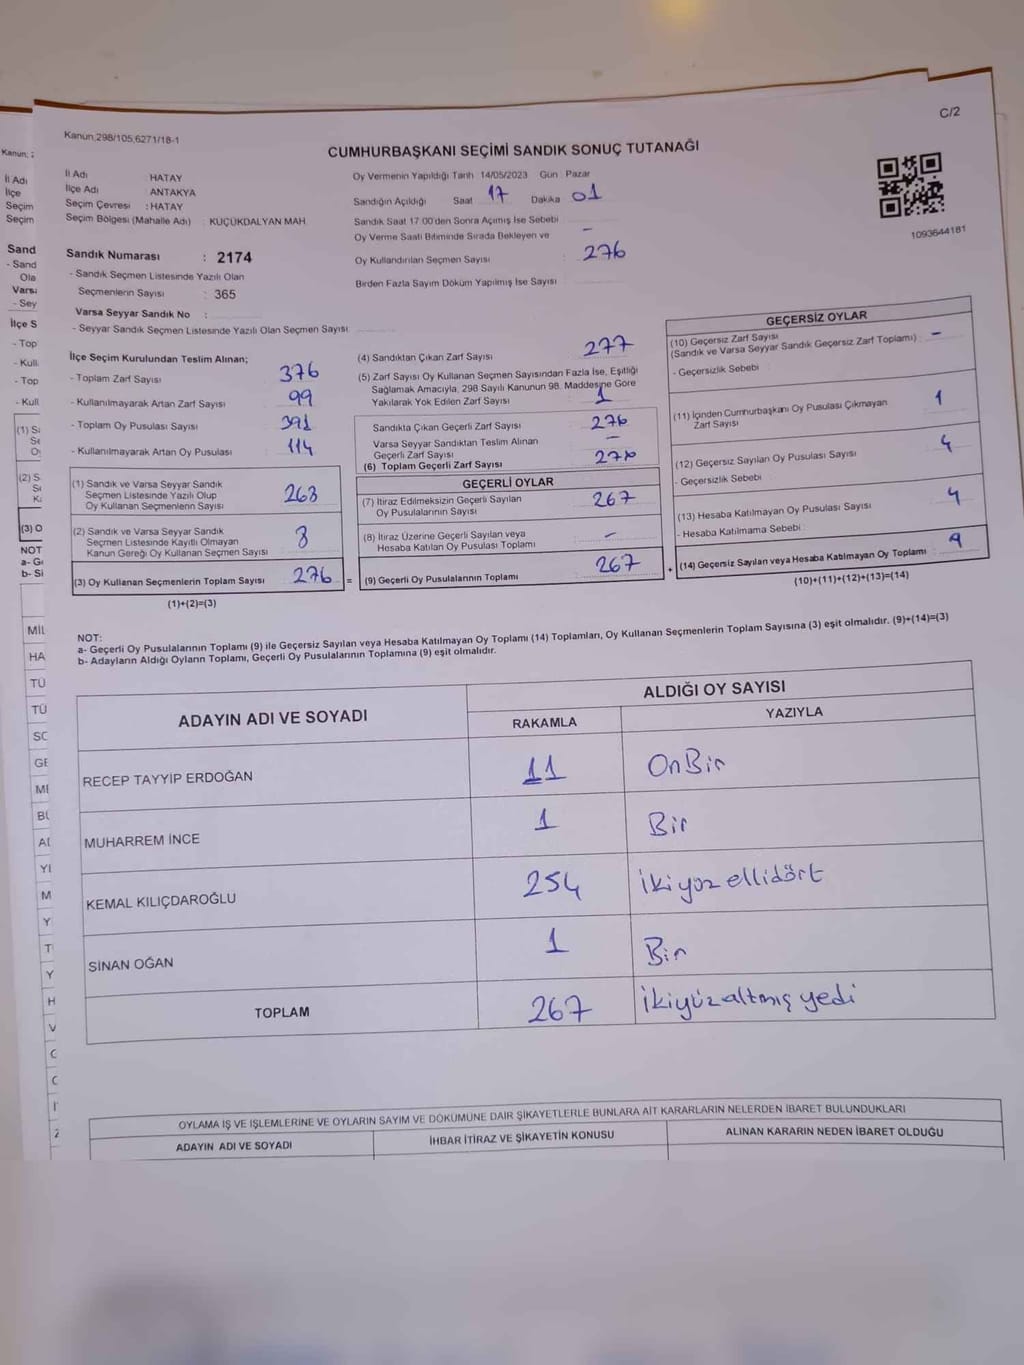 C/2
Kanun;298/105,6271/18-1
CUMHURBAŞKANI SEÇİMİ SANDIK SONUÇ TUTANAĞI
1093644181
İl Adı HATAY
İlçe Adı ANTAKYA
Seçim Çevresi : HATAY
Seçim Bölgesi (Mahalle Adı) : KÜÇÜKDALYAN MAH.
Sandık Numarası : 2174
- Sandık Seçmen Listesinde Yazılı Olan
Seçmenlerin Sayısı : 365
Varsa Seyyar Sandık No :
- Seyyar Sandık Seçmen Listesinde Yazılı Olan Seçmen Sayısı
Oy Vermenin Yapıldığı Tarih 14/05/2023 Gün : Pazar
Sandığın Açıldığı Saat 17 Dakika 01
Sandık Saat 17.00'den Sonra Açılmış İse Sebebi
Oy Verme Saati Bitiminde Sırada Bekleyen ve -
Oy Kullandırılan Seçmen Sayısı 276
Birden Fazla Sayım Döküm Yapılmış İse Sayısı
İlçe Seçim Kurulundan Teslim Alınan;
- Toplam Zarf Sayısı 376
- Kullanılmayarak Artan Zarf Sayısı 99
- Toplam Oy Pusulası Sayısı 391
- Kullanılmayarak Artan Oy Pusulası 114
(1) Sandık ve Varsa Seyyar Sandık
Seçmen Listesinde Yazılı Olup
Oy Kullanan Seçmenlerin Sayısı 268
(2) Sandık ve Varsa Seyyar Sandık
Seçmen Listesinde Kayıtlı Olmayan
Kanun Gereği Oy Kullanan Seçmen Sayısı 8
(3) Oy Kullanan Seçmenlerin Toplam Sayısı 276 =
(1)+(2)=(3)
(4) Sandıktan Çıkan Zarf Sayısı 277
(5) Zarf Sayısı Oy Kullanan Seçmen Sayısından Fazla İse, Eşitliği
Sağlamak Amacıyla, 298 Sayılı Kanunun 98. Maddesine Göre
Yakılarak Yok Edilen Zarf Sayısı 1
Sandıkta Çıkan Geçerli Zarf Sayısı 276
Varsa Seyyar Sandıktan Teslim Alınan
Geçerli Zarf Sayısı -
(6) Toplam Geçerli Zarf Sayısı 276
GEÇERLİ OYLAR
(7) İtiraz Edilmeksizin Geçerli Sayılan
Oy Pusulalarının Sayısı 267
(8) İtiraz Üzerine Geçerli Sayılan veya
Hesaba Katılan Oy Pusulası Toplamı -
(9) Geçerli Oy Pusulalarının Toplamı 267 +
GEÇERSİZ OYLAR
(10) Geçersiz Zarf Sayısı
(Sandık ve Varsa Seyyar Sandık Geçersiz Zarf Toplamı) -
- Geçersizlik Sebebi
(11) İçinden Cumhurbaşkanı Oy Pusulası Çıkmayan
Zarf Sayısı 1
(12) Geçersiz Sayılan Oy Pusulası Sayısı 4
- Geçersizlik Sebebi
(13) Hesaba Katılmayan Oy Pusulası Sayısı 4
- Hesaba Katılmama Sebebi
(14) Geçersiz Sayılan veya Hesaba Katılmayan Oy Toplamı 9
(10)+(11)+(12)+(13)=(14)
NOT:
a- Geçerli Oy Pusulalarının Toplamı (9) ile Geçersiz Sayılan veya Hesaba Katılmayan Oy Toplamı (14) Toplamları, Oy Kullanan Seçmenlerin Toplam Sayısına (3) eşit olmalıdır. (9)+(14)=(3)
b- Adayların Aldığı Oyların Toplamı, Geçerli Oy Pusulalarının Toplamına (9) eşit olmalıdır.
ADAYIN ADI VE SOYADI ALDIĞI OY SAYISI
RAKAMLA YAZIYLA
RECEP TAYYİP ERDOĞAN 11 OnBir
MUHARREM İNCE 1 Bir
KEMAL KILIÇDAROĞLU 254 ikiyüz ellidört
SİNAN OĞAN 1 Bir
TOPLAM 267 ikiyüzaltmış yedi
OYLAMA İŞ VE İŞLEMLERİNE VE OYLARIN SAYIM VE DÖKÜMÜNE DAİR ŞİKAYETLERLE BUNLARA AİT KARARLARIN NELERDEN İBARET BULUNDUKLARI
ADAYIN ADI VE SOYADI İHBAR İTİRAZ VE ŞİKAYETİN KONUSU ALINAN KARARIN NEDEN İBARET OLDUĞU